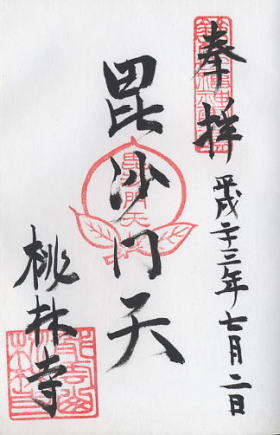 奉拝
平成二十三年七月二日
毘沙門天
桃林寺